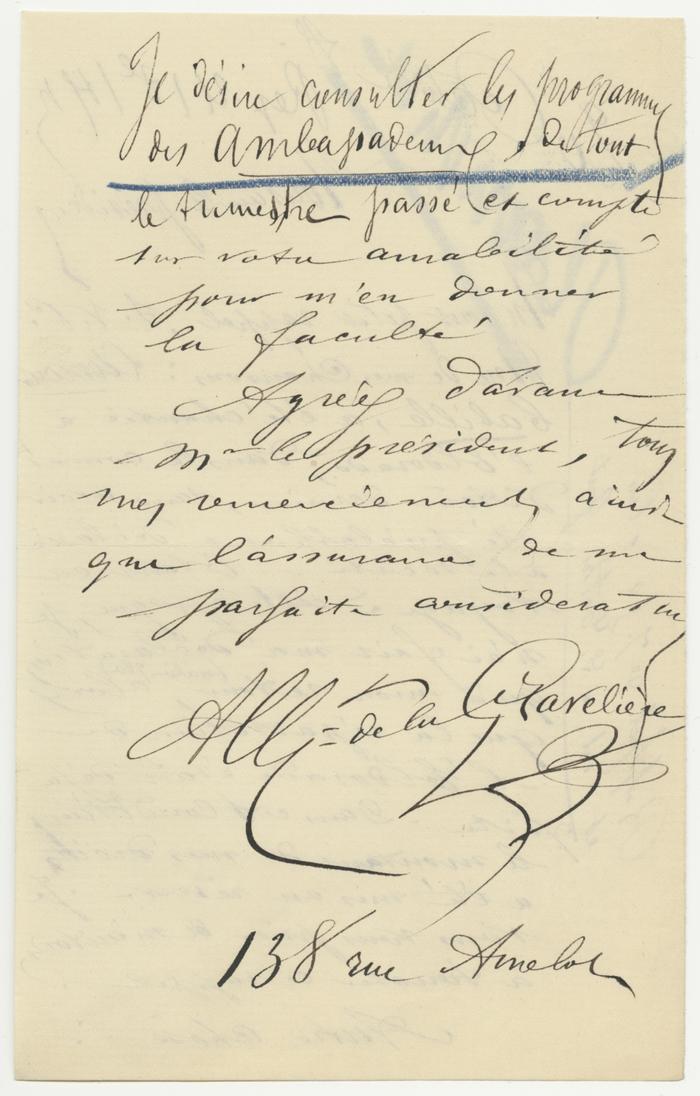 Je désire consulter les programmes
des Ambassadeurs, de tout
le trimestre passé et compte
sur votre amabilité
pour m'en donner
la faculté
Agréez d'avance
Mr le président, tous
mes remerciements ainsi
que l'assurance de ma
parfaite considération
de la Gravelière
138 rue Amelot